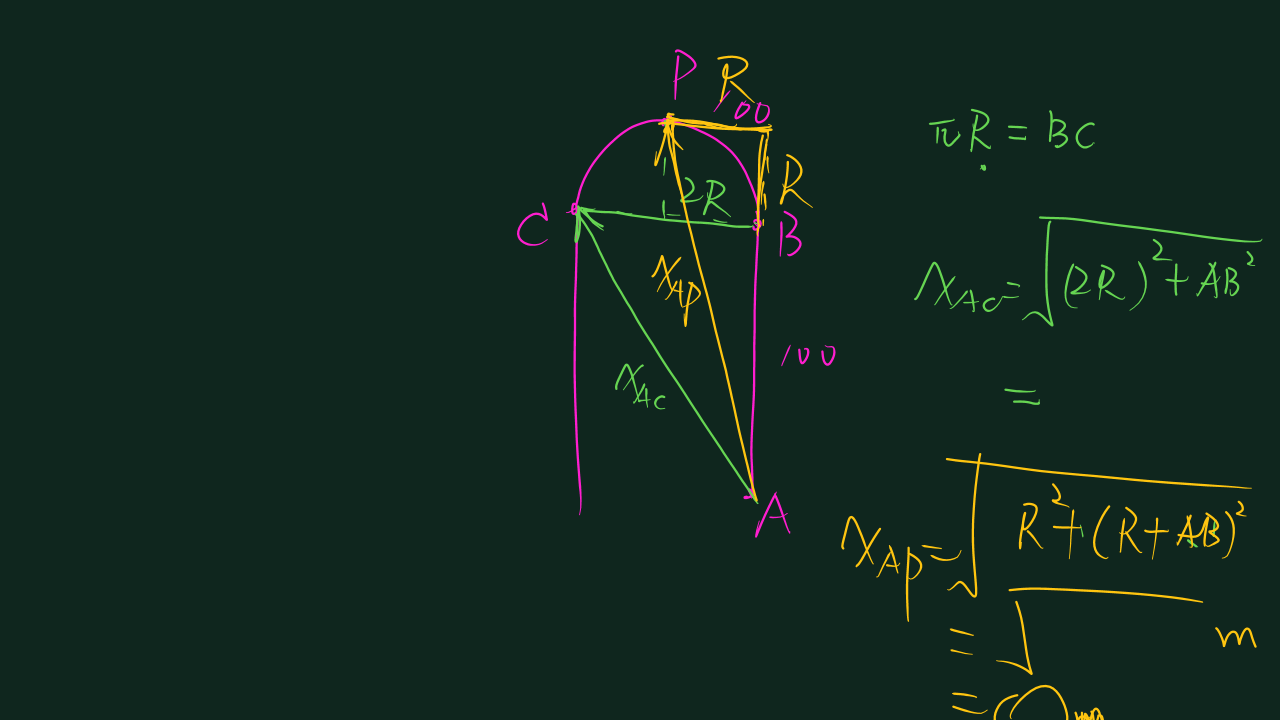 P R
100
R
2R
C
B
x_AP
100
x_AC
A
πR = BC
x_AC = √((2R)² + AB²)
=
x_AP = √(R² + (R + AB)²)
= √ m
= m